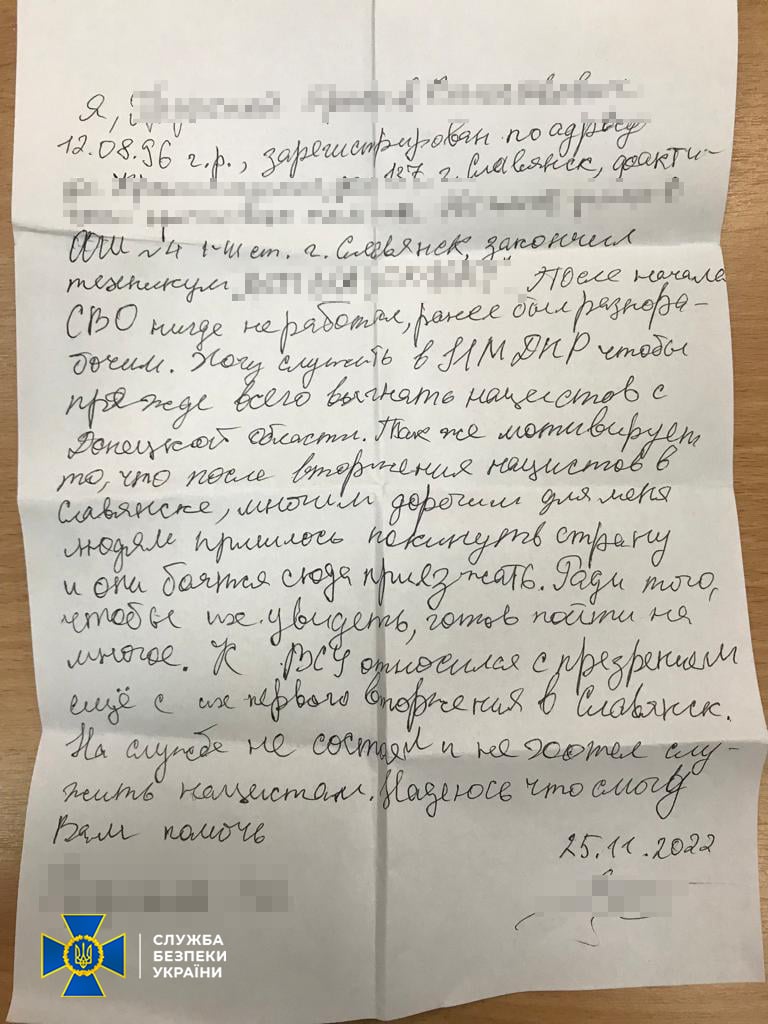 Я,
12.08.96 г.р., зарегистрирован по адресу
127 г. Славянск, факти-
ОШ №4 I-III ст. г. Славянск, закончил
техникум После начала
СВО нигде не работал, ранее был разнора-
бочим. Хочу служить в НМ ДНР чтобы
прежде всего выгнать нацистов с
Донецкой области. Так же мотивирует
то, что после вторжения нацистов в
Славянске, многим дорогим для меня
людям пришлось покинуть страну
и они боятся сюда приезжать. Ради того,
чтобы их увидеть, готов пойти на
многое. К ВСУ относился с презрением
ещё с их первого вторжения в Славянск.
На службе не состоял и не хотел слу-
жить нацистам. Надеюсь что смогу
Вам помочь
25.11.2022
СЛУЖБА
БЕЗПЕКИ
УКРАЇНИ